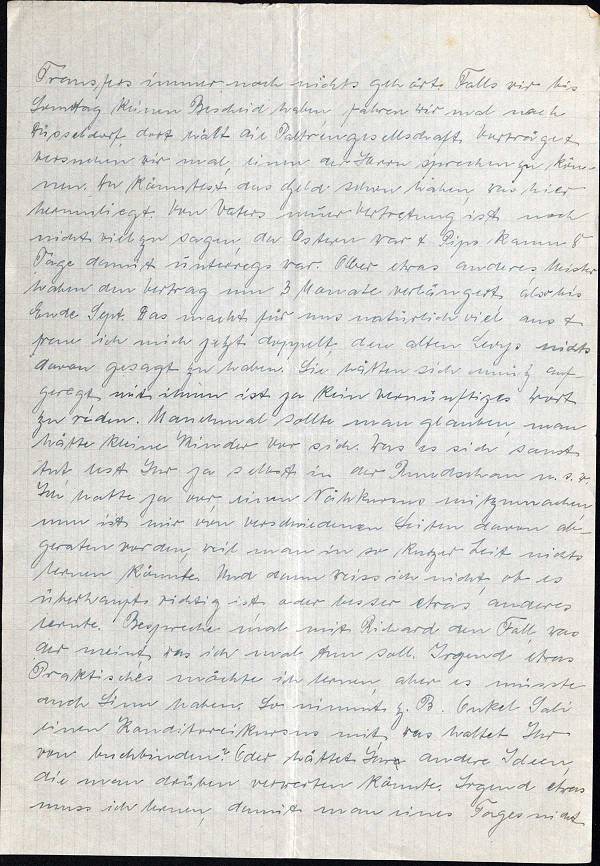 Transfers immer noch nichts gehört. Falls wir bis
Sonntag keinen Bescheid haben fahren wir mal nach
Düsseldorf, dort hält die Paltreugesellschaft Vorträge &
versuchen wir mal, einen der Herrn sprechen zu kön-
nen. Du könntest das Geld schon haben, was hier
herumliegt. Von Vaters neuer Vertretung ist noch
nicht viel zu sagen da Ostern war & Pips kaum 8
Tage damit unterwegs war. Aber etwas anderes. Meister
haben den Vertrag um 3 Monate verlängert also bis
Ende Sept. Das macht für uns natürlich viel aus &
freue ich mich jetzt doppelt, den alten Levys nichts
davon gesagt zu haben. Sie hätten sich unnütz auf-
geregt, mit ihnen ist ja kein vernünftiges Wort
zu reden. Manchmal sollte man glauben, man
hätte kleine Kinder vor sich. Was es sich sonst
tut, lest Ihr ja selbst in der Rundschau u. s. w.
Ich hatte ja vor, einen Nähkursus mitzumachen
nun ist mir von verschiedenen Seiten davon ab-
geraten worden, weil man in so kurzer Zeit nichts
lernen könnte. Und dann weiss ich nicht, ob es
überhaupt richtig ist oder besser etwas anderes
lernte. Bespreche mal mit Richard den Fall, was
der meint, was ich mal tun soll. Irgend etwas
Praktisches möchte ich lernen, aber es müsste
auch Sinn haben. So nimmt z. B. Onkel Sali
einen Konditoreikursus mit, was haltet Ihr
von buchbinden? Oder hättet Ihr andere Ideen,
die man drüben verwerten könnte. Irgend etwas
muss ich lernen, damit man eines Tages nicht